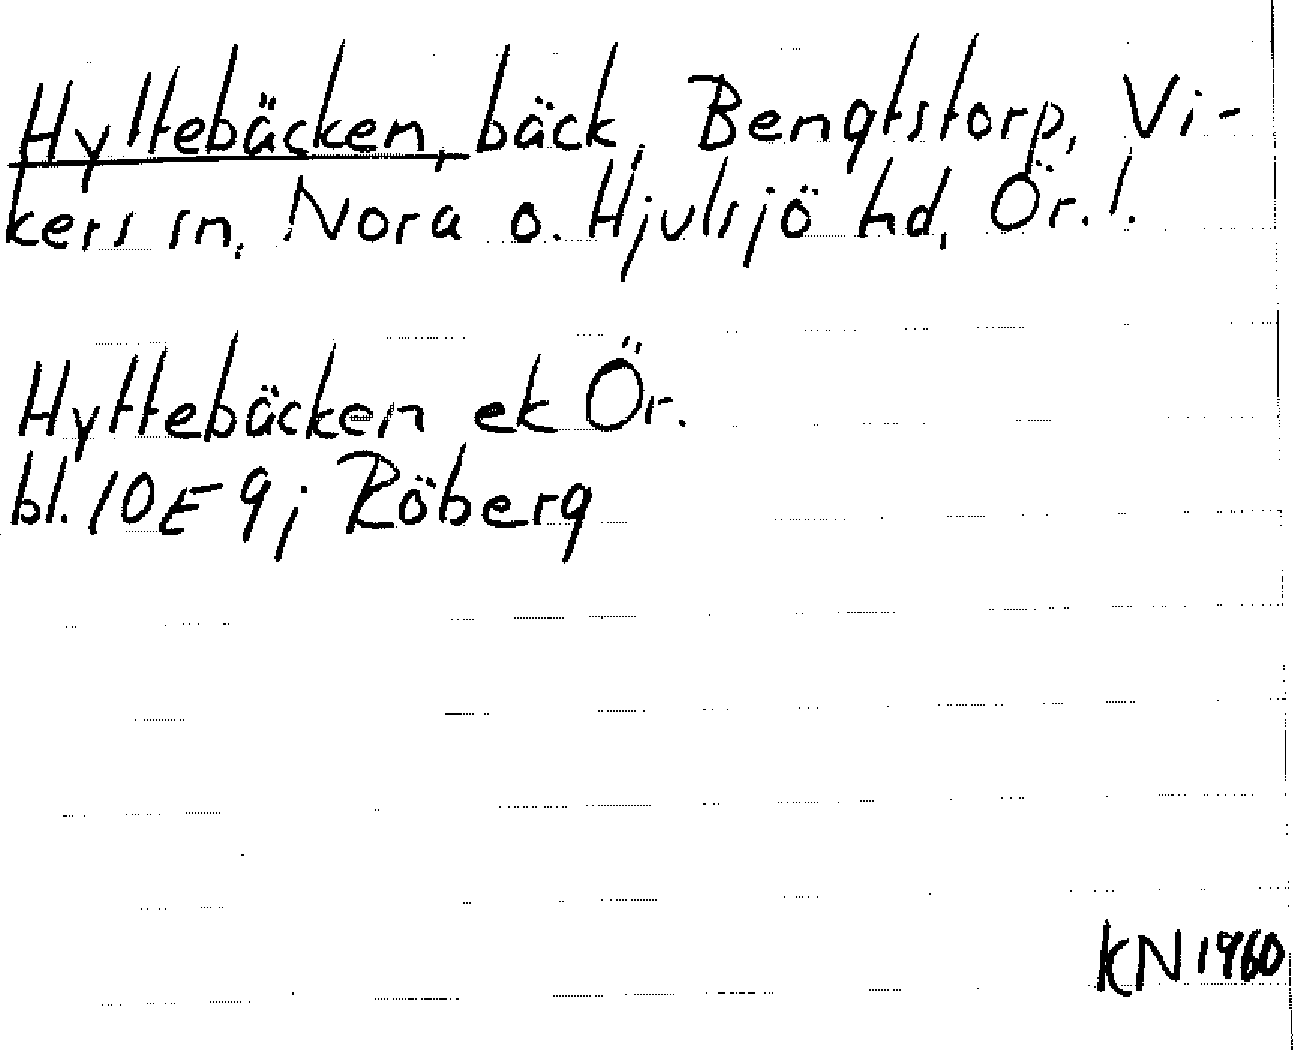 Hyttebäcken, bäck, Bengtstorp, Vi-
kers sn, Nora o. Hjulsjö hd, Ör. l.
Hyttebäcken ek Ör.
bl. 10E 9j Röberg
KN 1960